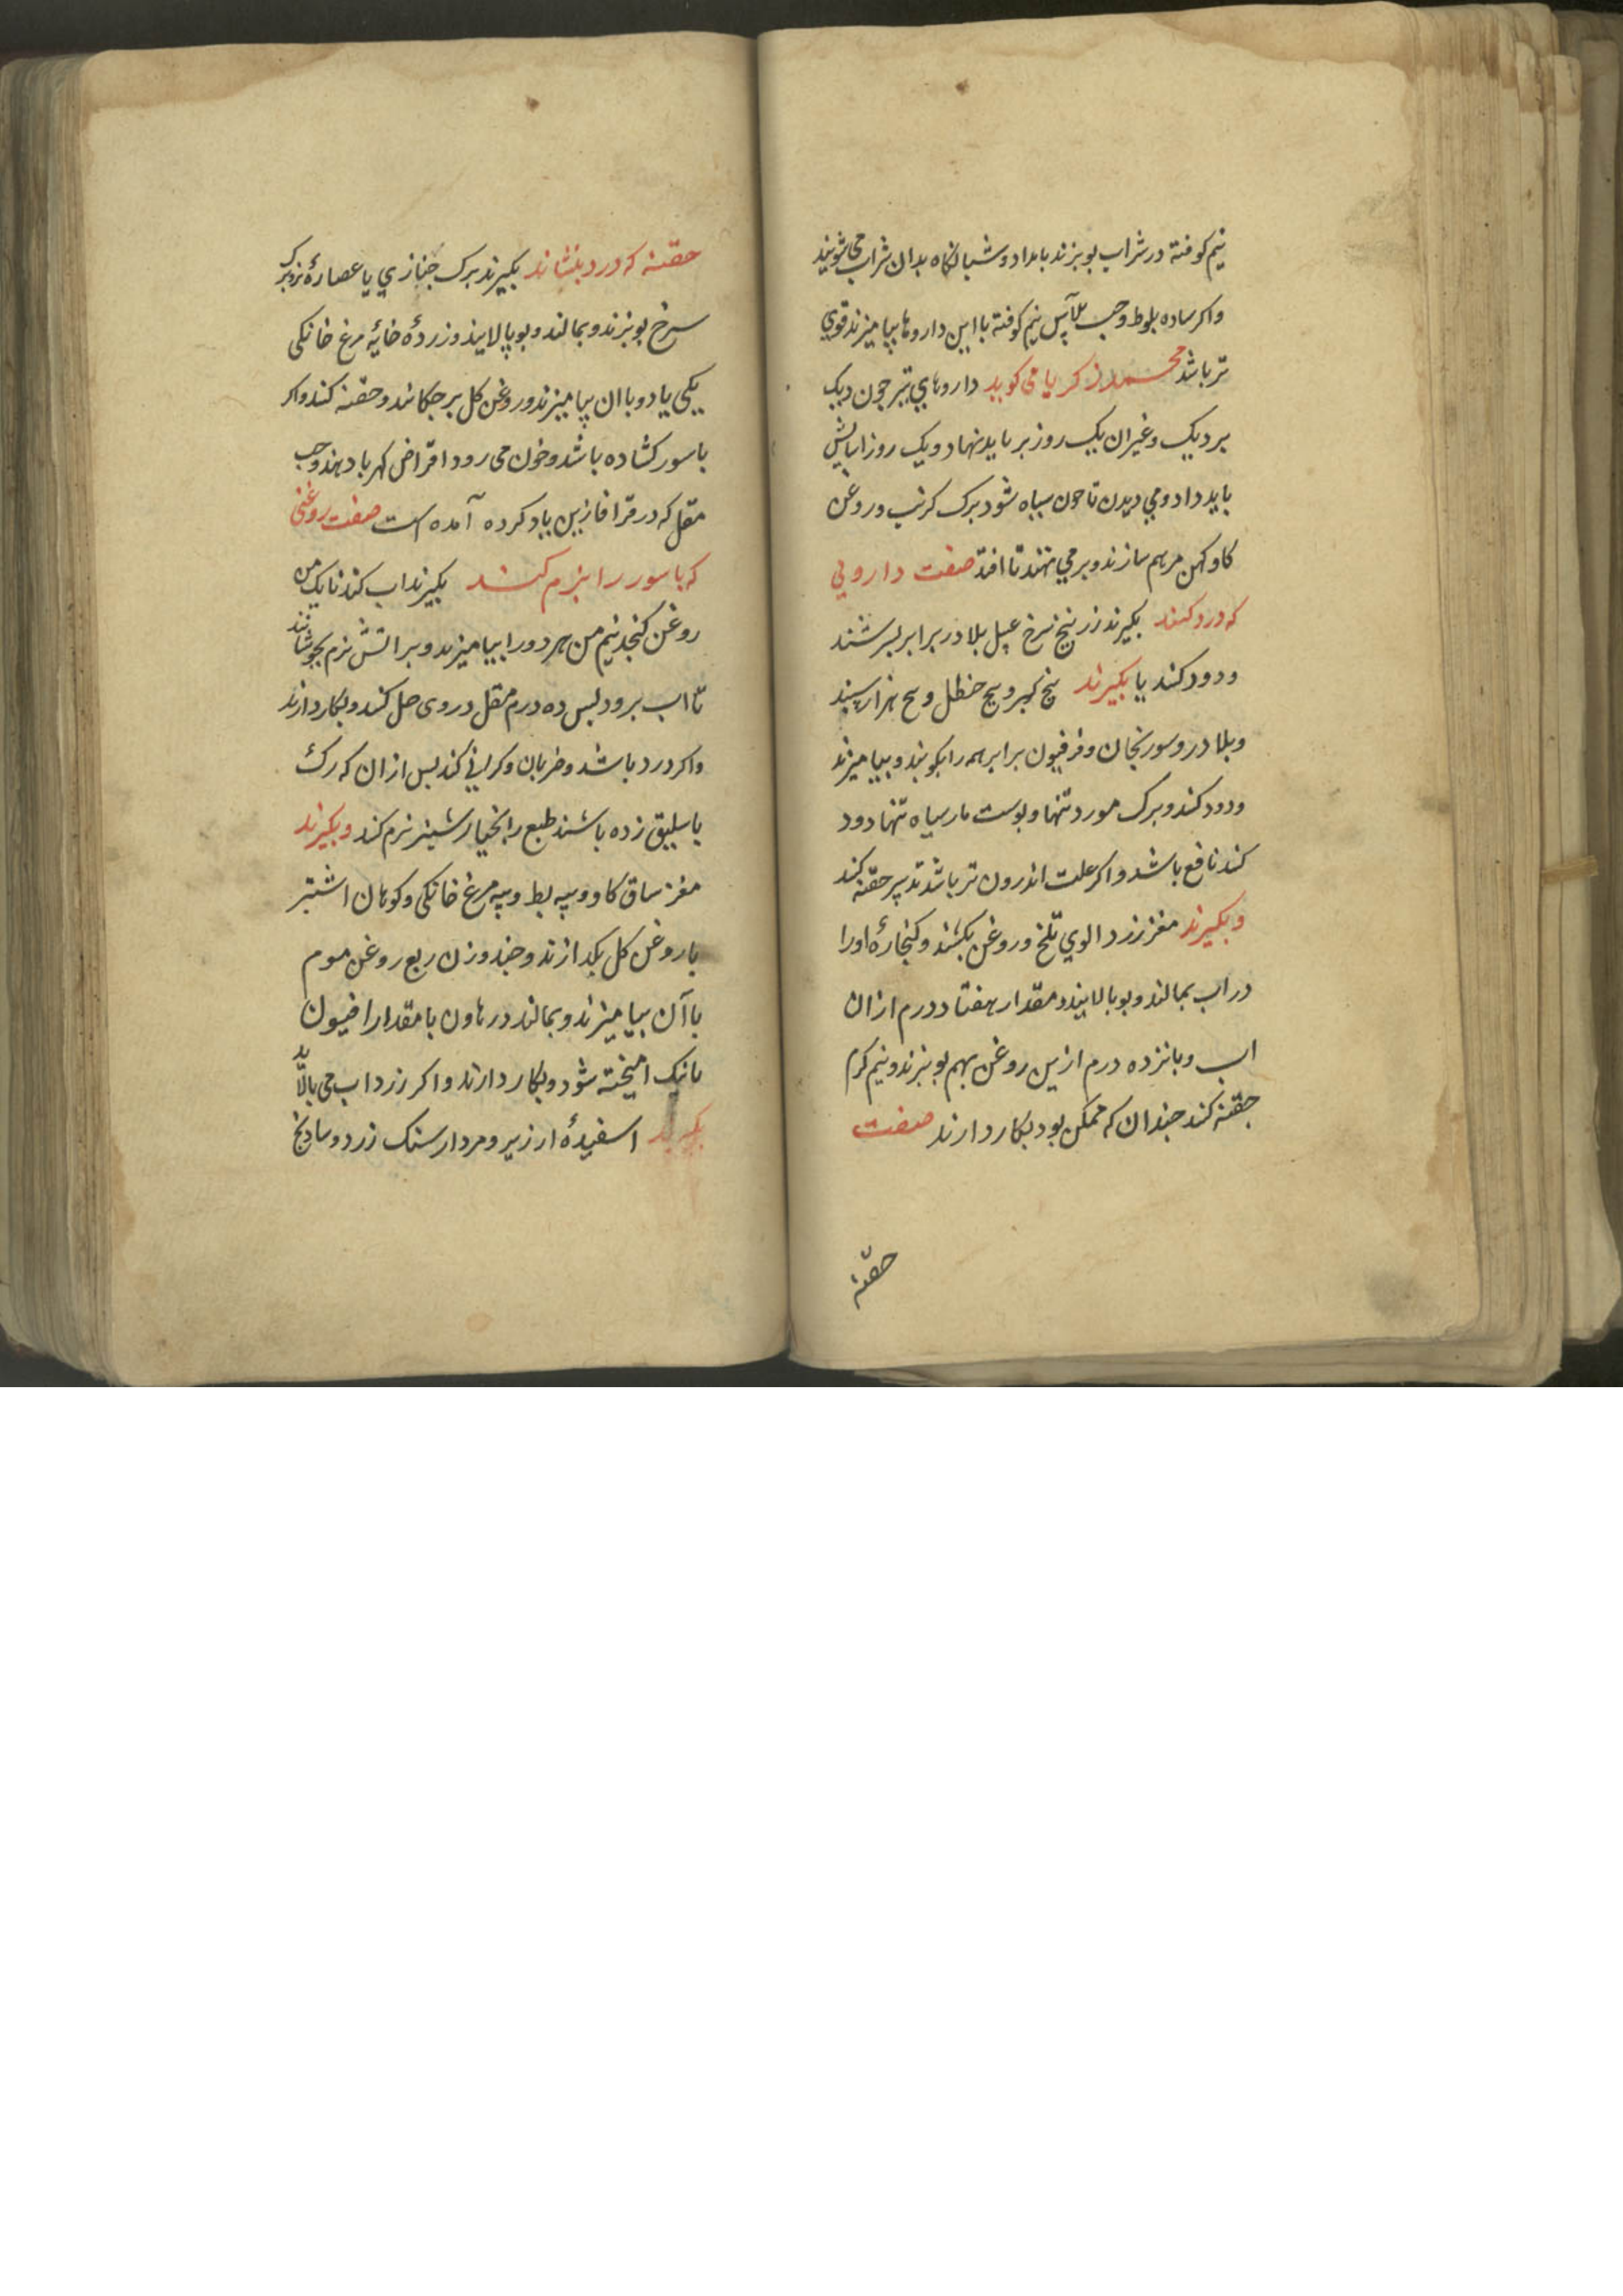 نیم کوفته در شراب بوبزند بامداد و شبانگاه بدان شراب می شویند
واکر ساده بلوط و حب الآس نیم کوفته با این داروها بیامیزند قوی
تر باشد محمد زکریا می کوید داروهای تیز چون دیک
بر دیک و غیر ان یک روز بر باید نهاد و یک روز اسایش
باید داد و می دیدن تا چون سیاه شود برک کرنب و روغن
کاو کهن مرهم سازند و بر می نهند تا افتد صفت دارویی
که دود کنند بکیرند زرنیخ سرخ عسل بلادر برابر بسرشند
و دود کند یا بکیرند بیخ کبر و بیخ حنظل و بیخ هزار سپند
و بلادر و سورنجان و فرفیون برابر همه را بکوبند و بیامیزند
و دود کند و برک مورد تنها و پوست مار سیاه تنها دود
کند نافع باشد و اکر علت اندرون تر باشد تدبیر حقنه کند
و بکیرند مغز زرد الوی تلخ و روغن بکشند و کنجارهٔ او را
در اب بمالند و بوبالایند و مقدار هفتاد درم ازان
اب و بانزده درم ازین روغن بهم بوبزند و نیم کرم
حقنه کند جندان که ممکن بود بکار دارند صفت
حقنه
حقنه که درد بنشاند بکیرند برک خبازی یا عصارهٔ
سرخ بوبزند و بمالند و بوپالایند و زردهٔ خایهٔ مرغ خانکی
یکی یا دو با ان بیامیزند و روغن کل بر جکانند و حقنه کند و اکر
باسور کشاده باشد و خون می رود اقراض کهربا دهند و حب
مقل که در قرافازین یاد کرده آمده است صفت روغنی
که باسور را نرم کند بکیرند اب کندنا یک من
روغن کنجد نیم من هر دو را بیامیزند و بر اتش نرم بجوشانند
تا اب برود پس ده درم مقل در وی حل کنند و بکار دارند
واکر درد باشد و ضربان و کرانی کند بس ازان که رک
باسلیق زده باشند طبع را بخیار شنبر نرم کند و بکیرند
مغز ساق کاو و پیه بط و پیه مرغ خانکی و کوهان اشتر
با روغن کل بکدازند و جند وزن ربع روغن موم
با آن بیامیزند و بمالند در هاون با مقدار افیون
تا نیک امیخته شود و بکار دارند و اکر زرداب می بالاید
بکیرند اسفیدهٔ ارزیر و مردار سنک زرد و سادنج